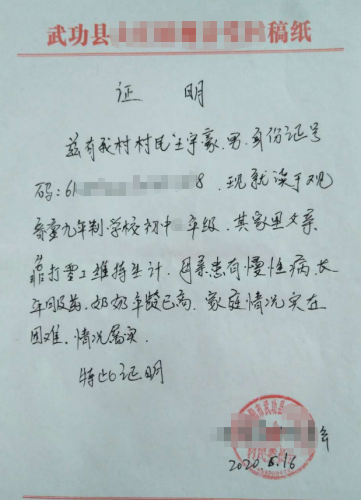 武功县 稿纸
证 明
兹有我村村民王宇豪,男,身份证号
码:61 8,现就读于观
音堂九年制学校初中 年级,其家里父亲
靠打零工维持生计,母亲患有慢性病,长
年服药,奶奶年龄已高,家庭情况实在
困难,情况属实.
特此证明
2020.6.16